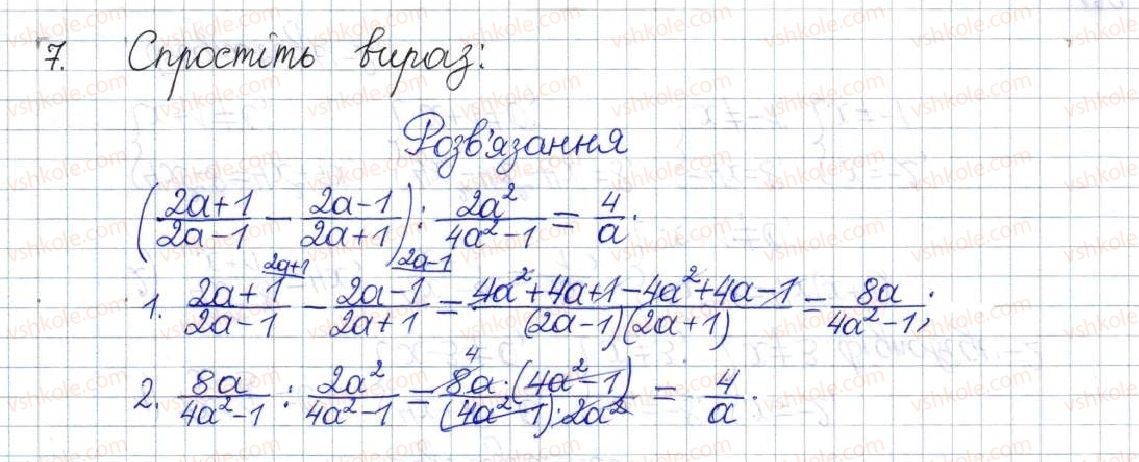 7. Спростіть вираз:
Розв'язання
(2a+1/2a-1 - 2a-1/2a+1) : 2a²/4a²-1 = 4/a.
1. 2a+1/2a-1 ^2a+1 - 2a-1/2a+1 ^2a-1 = 4a²+4a+1-4a²+4a-1/(2a-1)(2a+1) = 8a/4a²-1;
2. 8a/4a²-1 : 2a²/4a²-1 = 8a·(4a²-1)/(4a²-1)·2a² ^4 = 4/a.